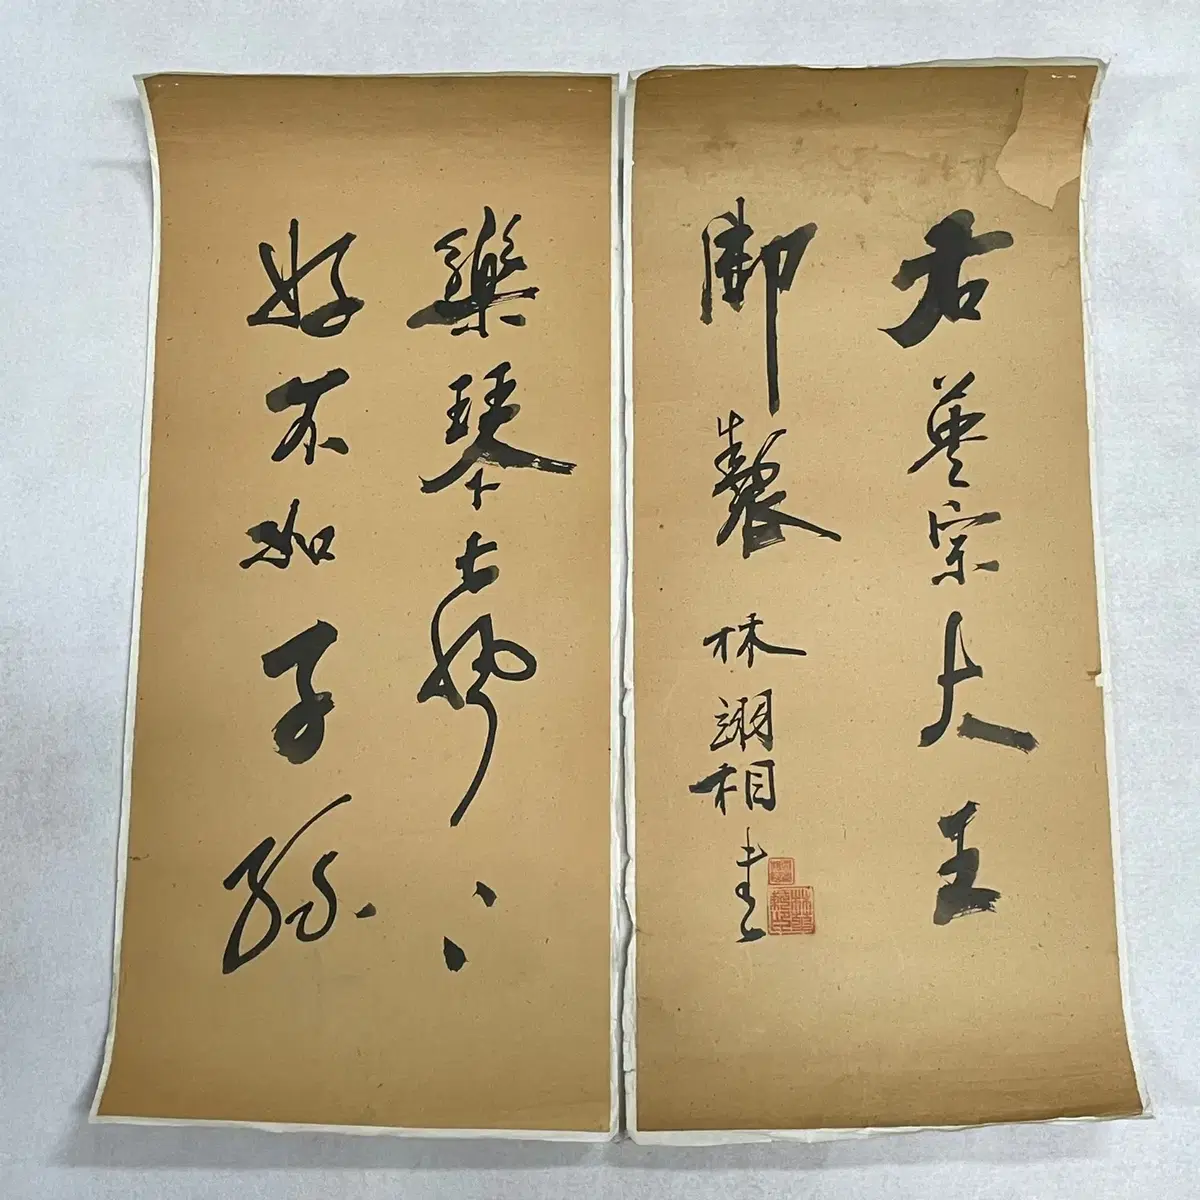 右英宗大王
御製 林翊相書
樂琴
好不如子孫